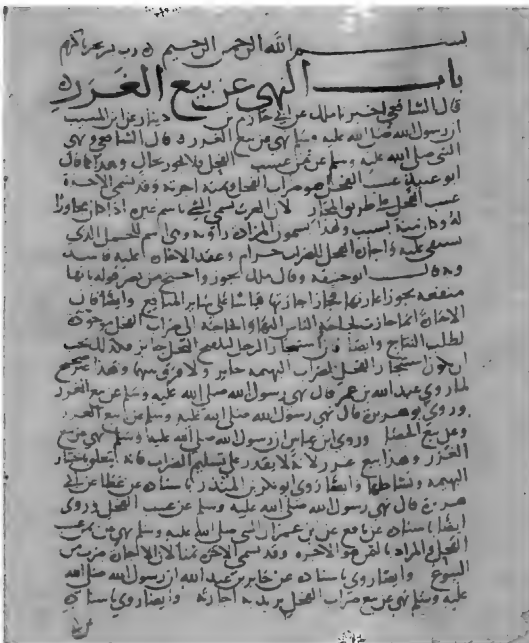 بسم الله الرحمن الرحيم رب يسر يا كريم
باب النهي عن بيع الغرر
قال الشافعي اخبرنا ملك عن ابي حازم بن دينار عن ابن المسيب
ان رسول الله صلى الله عليه وسلم نهى عن بيع الغرر قال الشافعي ونهى
النبي صلى الله عليه وسلم عن ثمن عسب الفحل ولا يجوز بحال وهذا كما قال
ابو عبيدة عسب الفحل هو ضراب الفحل وثمنه اجرته وقد تسمى الاجرة
عسب الفحل على طريق المجاز لان العرب تسمي الشي باسم غيره اذا كان مجاورا
له وكان منه بسبب ولهذا يسمون المزادة راوية وهي اسم للجمل الذي
يستقى عليه واجارة الفحل للضراب حرام وعقد الاجارة عليه فاسد
وبه قال ابو حنيفة وقال ملك يجوز واحتج من نصر قوله بانها
منفعة يجوز اعارتها فجاز اجارتها قياسا على ساير المنافع وايضا فان
الاجارة انما جازت لحاجة الناس اليها والحاجة الى ضراب الفحل موجودة
لطلب النتاج وايضا فان استيجار الرجل لتلقيح النخل جايز فكذلك يجب
ان يكون استيجار الفحل لضراب البهيمة جايز ولا فرق بينهما وهذا غير صحيح
لما روى عبد الله بن عمر قال نهى رسول الله صلى الله عليه وسلم عن بيع الغرر
وروى ابو هريرة قال نهى رسول الله صلى الله عليه وسلم عن بيع الغرر
وعن بيع الحصا وروى ابن عباس ان رسول الله صلى الله عليه وسلم نهى عن بيع
الغرر وهذا بيع غرر لانه لا يقدر على تسليم الضراب فانه يتعلق باختيار
البهيمة ونشاطها وايضا روى ابو بكر بن المنذر باسناده عن عطا عن ابي
هريرة قال نهى رسول الله صلى الله عليه وسلم عن عسب الفحل وروى
ايضا باسناده عن نافع عن ابن عمر ان النبي صلى الله عليه وسلم نهى عن ثمن عسب
الفحل والمراد بالثمن هو الاجرة وقد تسمى الاجرة ثمنا لان الاجارة ضرب من
البيوع وايضا روى باسناده عن جابر بن عبد الله ان رسول الله صلى الله
عليه وسلم نهى عن بيع ضراب الفحل يريد به اجارته وايضا روى باسناده
عن